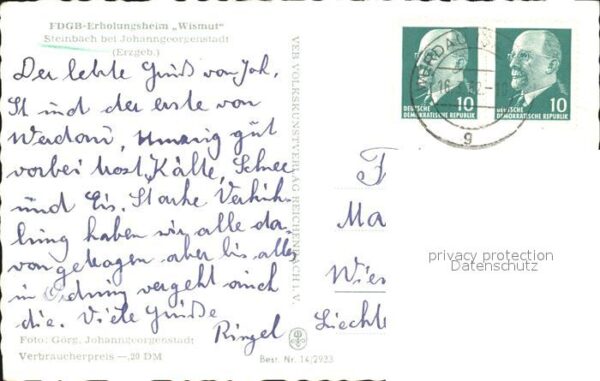 FDGB-Erholungsheim „Wismut"
Steinbach bei Johanngeorgenstadt
(Erzgeb.)
Der letzte Gruß von Joh.
St und der erste von
Werdau, gut
vorbei trotz Kälte, Schnee
und Eis. Starke Verküh-
lung haben wir alle da-
von getragen aber bis alles
in Ordnung vergeht auch
die. Viele Grüße
Ringel
Foto: Görg, Johanngeorgenstadt
Verbraucherpreis —,20 DM
VEB VOLKSKUNSTVERLAG REICHENBACH I. V.
Best. Nr. 14/2933
WERDAU
16.
g
10
DEUTSCHE
DEMOKRATISCHE REPUBLIK
10
DEUTSCHE
DEMOKRATISCHE REPUBLIK
F
Ma
Wies
Liecht
privacy protection
Datenschutz